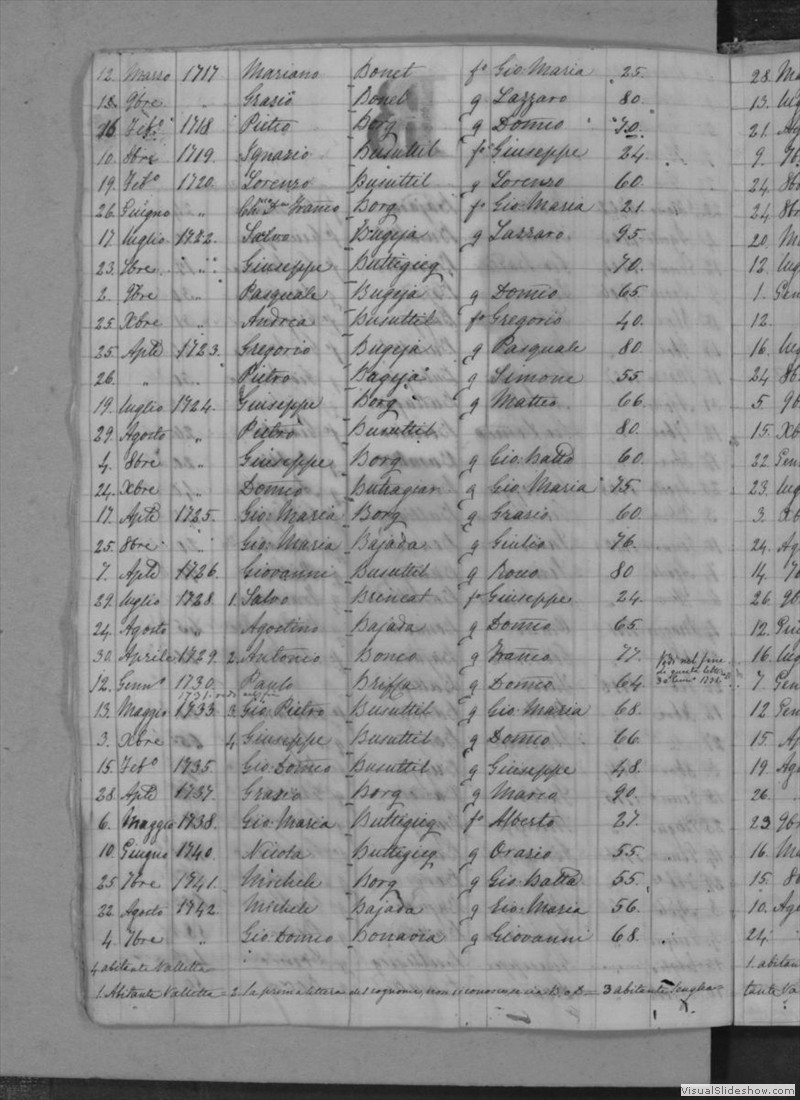 12. Marzo 1717 Mariano Bonet fo Gio: Maria 25.
18. 9bre " Grasio Bonet q Lazzaro 80.
16 Febo 1718 Pietro Borg q Domco 70.
10. 8bre 1719. Ignazio Busuttil fo Giuseppe 24
19. Febo 1720. Lorenzo Busuttil q Lorenzo 60.
26. Giugno " Franco Borg fo Gio: Maria 21.
17. luglio 1722. Salvo Bugeja q Lazzaro 95.
23. 7bre " Giuseppe Buttigieg 70.
2. 9bre " Pasquale Bugeja q Domco 65
25 Xbre " Andrea Busuttil fo Gregorio 40.
25. Aple 1723. Gregorio Bugeja q Pasquale 80.
26. " " Pietro Bugeja q Simone 55
19. luglio 1724. Giuseppe Borg q Matteo 66.
29. Agosto " Pietro Busuttil 80.
4. 8bre " Giuseppe Borg q Gio: Batta 60.
24. Xbre " Domco Buhagiar q Gio: Maria 75.
17. Aple 1725. Gio: Maria Borg q Grasio 60.
25. 8bre " Gio: Maria Bajada q Giulio 76.
7. Aple 1726. Giovanni Busuttil q Rocco 80
29. luglio 1728. 1. Salvo Brincat fo Giuseppe 24
24. Agosto " Agostino Bajada q Domco 65
30. Aprile 1729. 2. Antonio Bonco q Franco 77. Vedi nel fine
di questa lettera
12. Genno 1730. Paulo Briffa q Domco 64
13. Maggio 1733. 3. Gio: Pietro Busuttil q Gio: Maria 68.
3. Xbre 4. Giuseppe Busuttil q Domco 66
15. Febo 1735. Gio: Domco Busuttil q Giuseppe 48.
28. Aple 1737. Grasio Borg q Marco 90.
6. Maggio 1738. Gio: Maria Buttigieg fo Alberto 27.
10. Giugno 1740. Nicola Buttigieg q Orasio 55.
25. 7bre 1741. Michele Borg q Gio: Batta 55.
22. Agosto 1742. Michele Bajada q Gio: Maria 56.
4. 7bre " Gio: Domco Bonavia q Giovanni 68.
4 abitante Valletta
1. Abitante Valletta = 2. la prima lettera del cognome, non si conosce se sia B, o D = 3 abitante Senglea =
28. Ma
13. lug
21. Ag
9. 7b
24 8b
24 8br
20. M
12. lug
1. Gen
12.
16. lug
24 8b
5. 9b
15. Xb
22. Gen
23. lug
3. Xb
24. Ag
14. Fe
26. 9b
12. Giu
16. lug
7. Gen
12 Gen
15. Ap
19. Ago
26. "
23 9br
16. Ma
15. 8b
10. Ago
24.
1. abitan
tante Va
VisualSlideshow.com